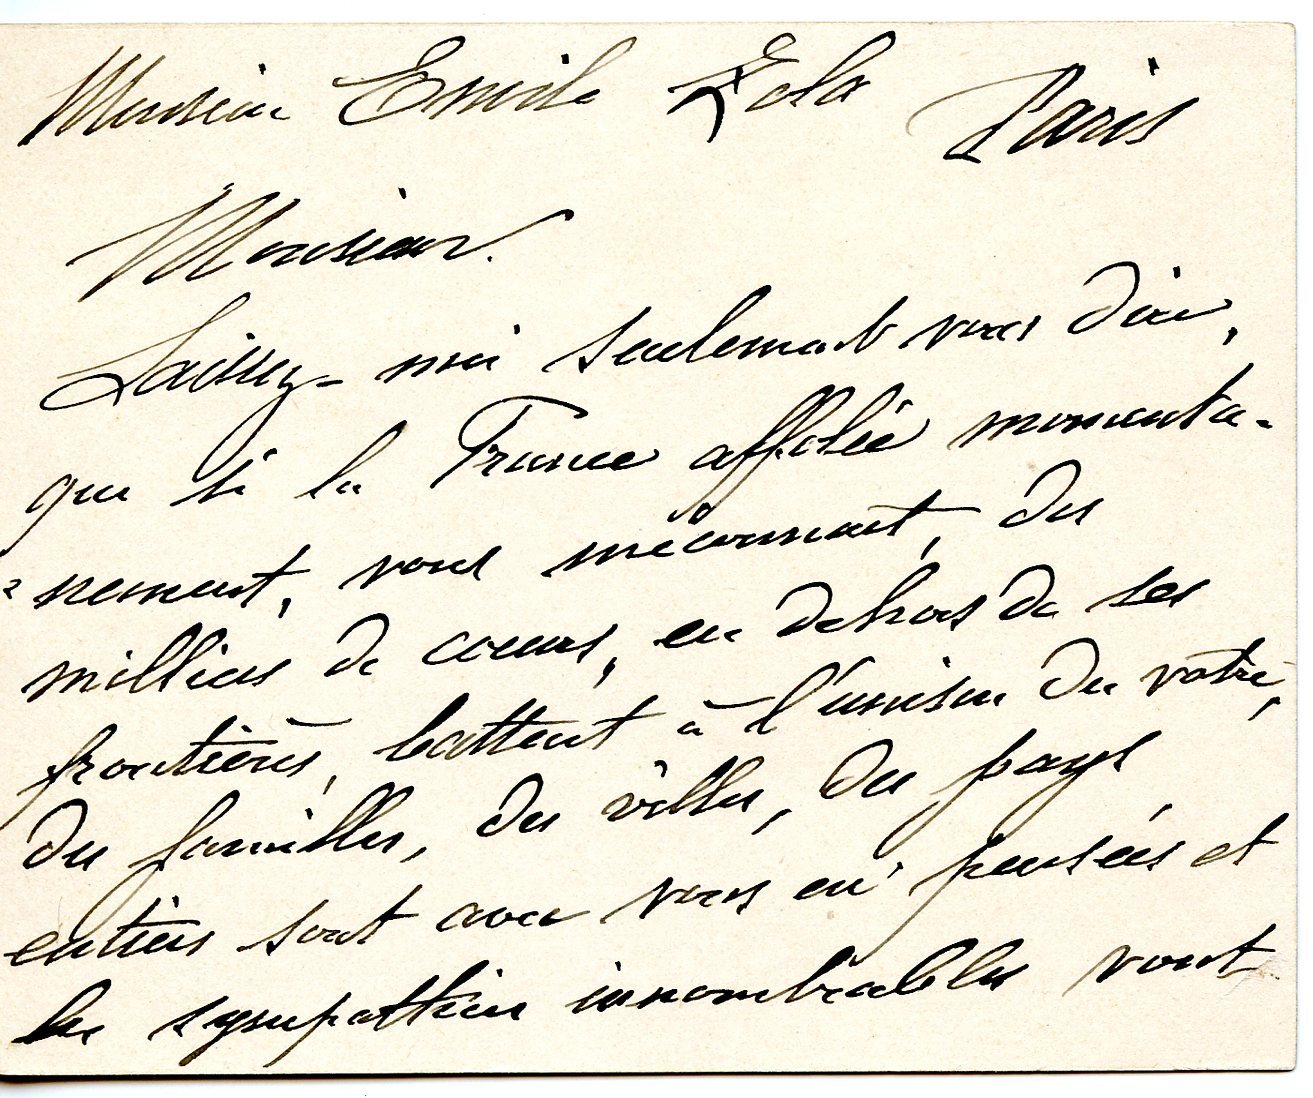 Monsieur Emile Zola Paris
Monsieur.
Laissez-moi seulement vous dire,
que si la France affolée momenta-
nement, vous méconnait, des
millions de cœurs, en dehors de ses
frontières, battent à l'unison du votre,
des familles, des villes, des pays
entiers sont avec vous en pensées et
les sympathies innombrables vont